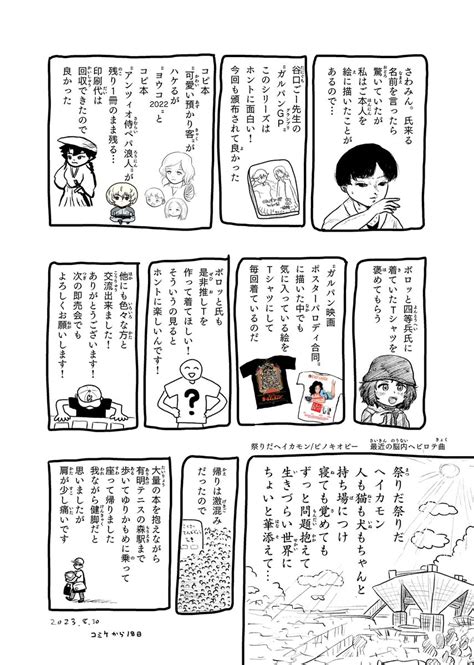 さわみん。氏来る
名前を言ったら
驚いていたが
私はご本人を
絵に描いたことが
あるので…
谷口ごー先生の
〝ガルパンGP〟
このシリーズは
ホントに面白い!
今回も頒布されて良かった
コピ本
〝可愛い預かり客〟が
ハケるが
〝ヨウコ2022〟と
コピ本
〝アンツィオ侍ペパ浪人〟が
残り1冊のまま残る…
印刷代は
回収できたので
良かった
ボロッと四等兵氏に
着ていたTシャツを
褒めてもらう
〝ガルパン映画
ポスターパロディ合同〟
に描いた中でも
気に入っている絵を
Tシャツにして
毎回着ているのだ
ボロッと氏も
是非推しTを
作って着てほしい!
そういうの見ると
ホントに楽しいんです!
?
他にも色々な方と
交流出来ました!
ありがとうございます!
次の即売会でも
よろしくお願いします!
祭りだヘイカモン/ピノキオピー
最近の脳内ヘビロテ曲
祭りだ祭りだ
ヘイカモン
人も猫も犬もちゃんと
持ち場につけ
寝ても覚めても
ずっと問題抱えて
生きづらい世界に
ちょいと華添えて…
帰りは激混み
だったので
大量の本を抱えながら
有明テニスの森駅まで
歩いてゆりかもめに乗って
座って帰りました
我ながら健脚だと
思いましたが
肩が少し痛いです
2023.8.30
コミケから18日